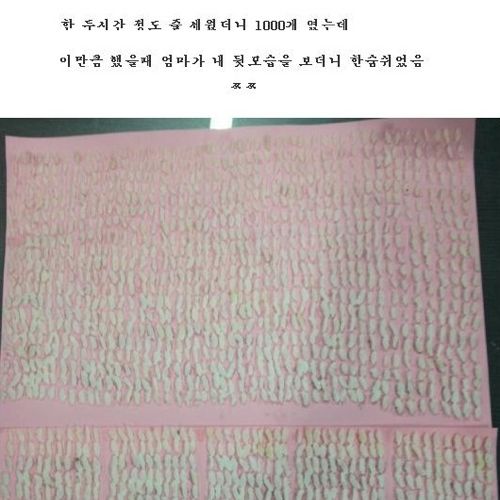 한 두시간 정도 줄 세웠더니 1000개 였는데
이만큼 했을때 엄마가 내 뒷모습을 보더니 한숨쉬었음
ㅉㅉ